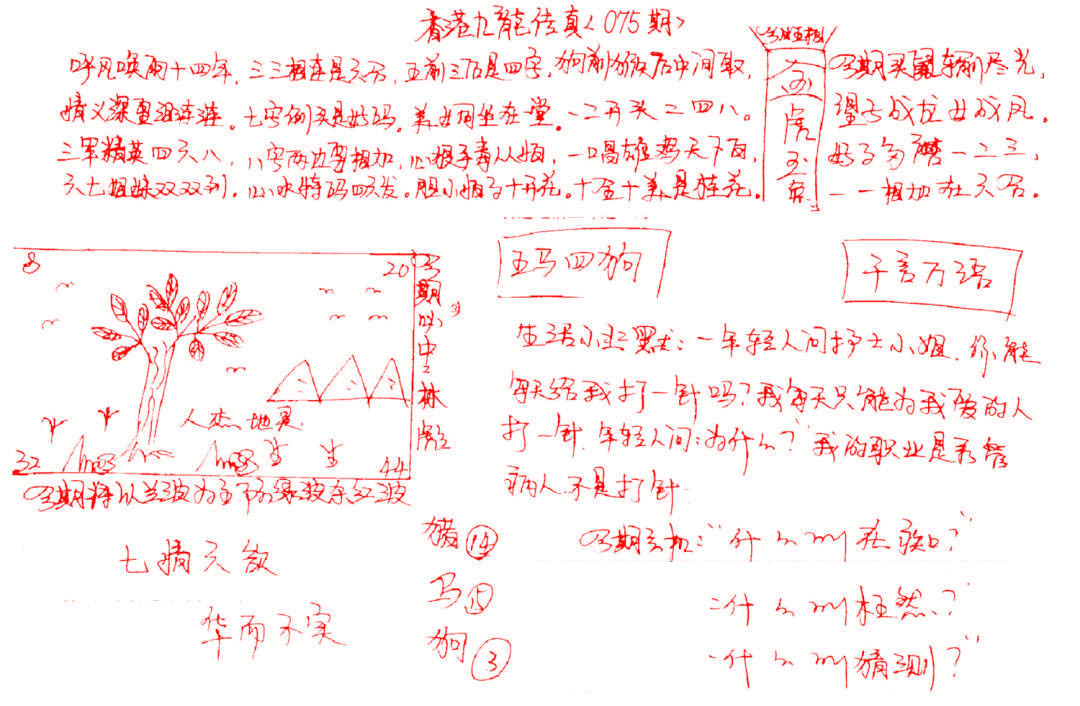 香港九龍传真<075期>
呼风唤雨十四年，三三相连是六合，五前三后是四字，狗前猴后中间取，
情义深重泪连连。七字例头是好码。美女同坐在一堂。一二开头二四八。
三军精英四六八，八字两边要相加，心狠手毒从姻，一唱雄鸡天下白，
六七姐妹双双到，心水特码四六发。胆小娘子十开花。十全十美是桂花。
金
虎
玉
兔
期买鼠输尽光，
望子成龙女成凤。
好多磨一二三，
一一相加在六合。
8
20
人杰地灵
32
44
期必中林彪
期将以兰波为主防绿波杀红波
五马四狗
千言万语
生活小幽默：一年轻人问护士小姐，你能
每天给我打一针吗？我每天只能为我爱的人
打一针，年轻人问：为什么？我的职业是看管
病人不是打针
期玄机："什么叫
二什么叫枉然？
什么叫猜测？"
七情六欲
华而不实
猪⑭
马⑮
狗③